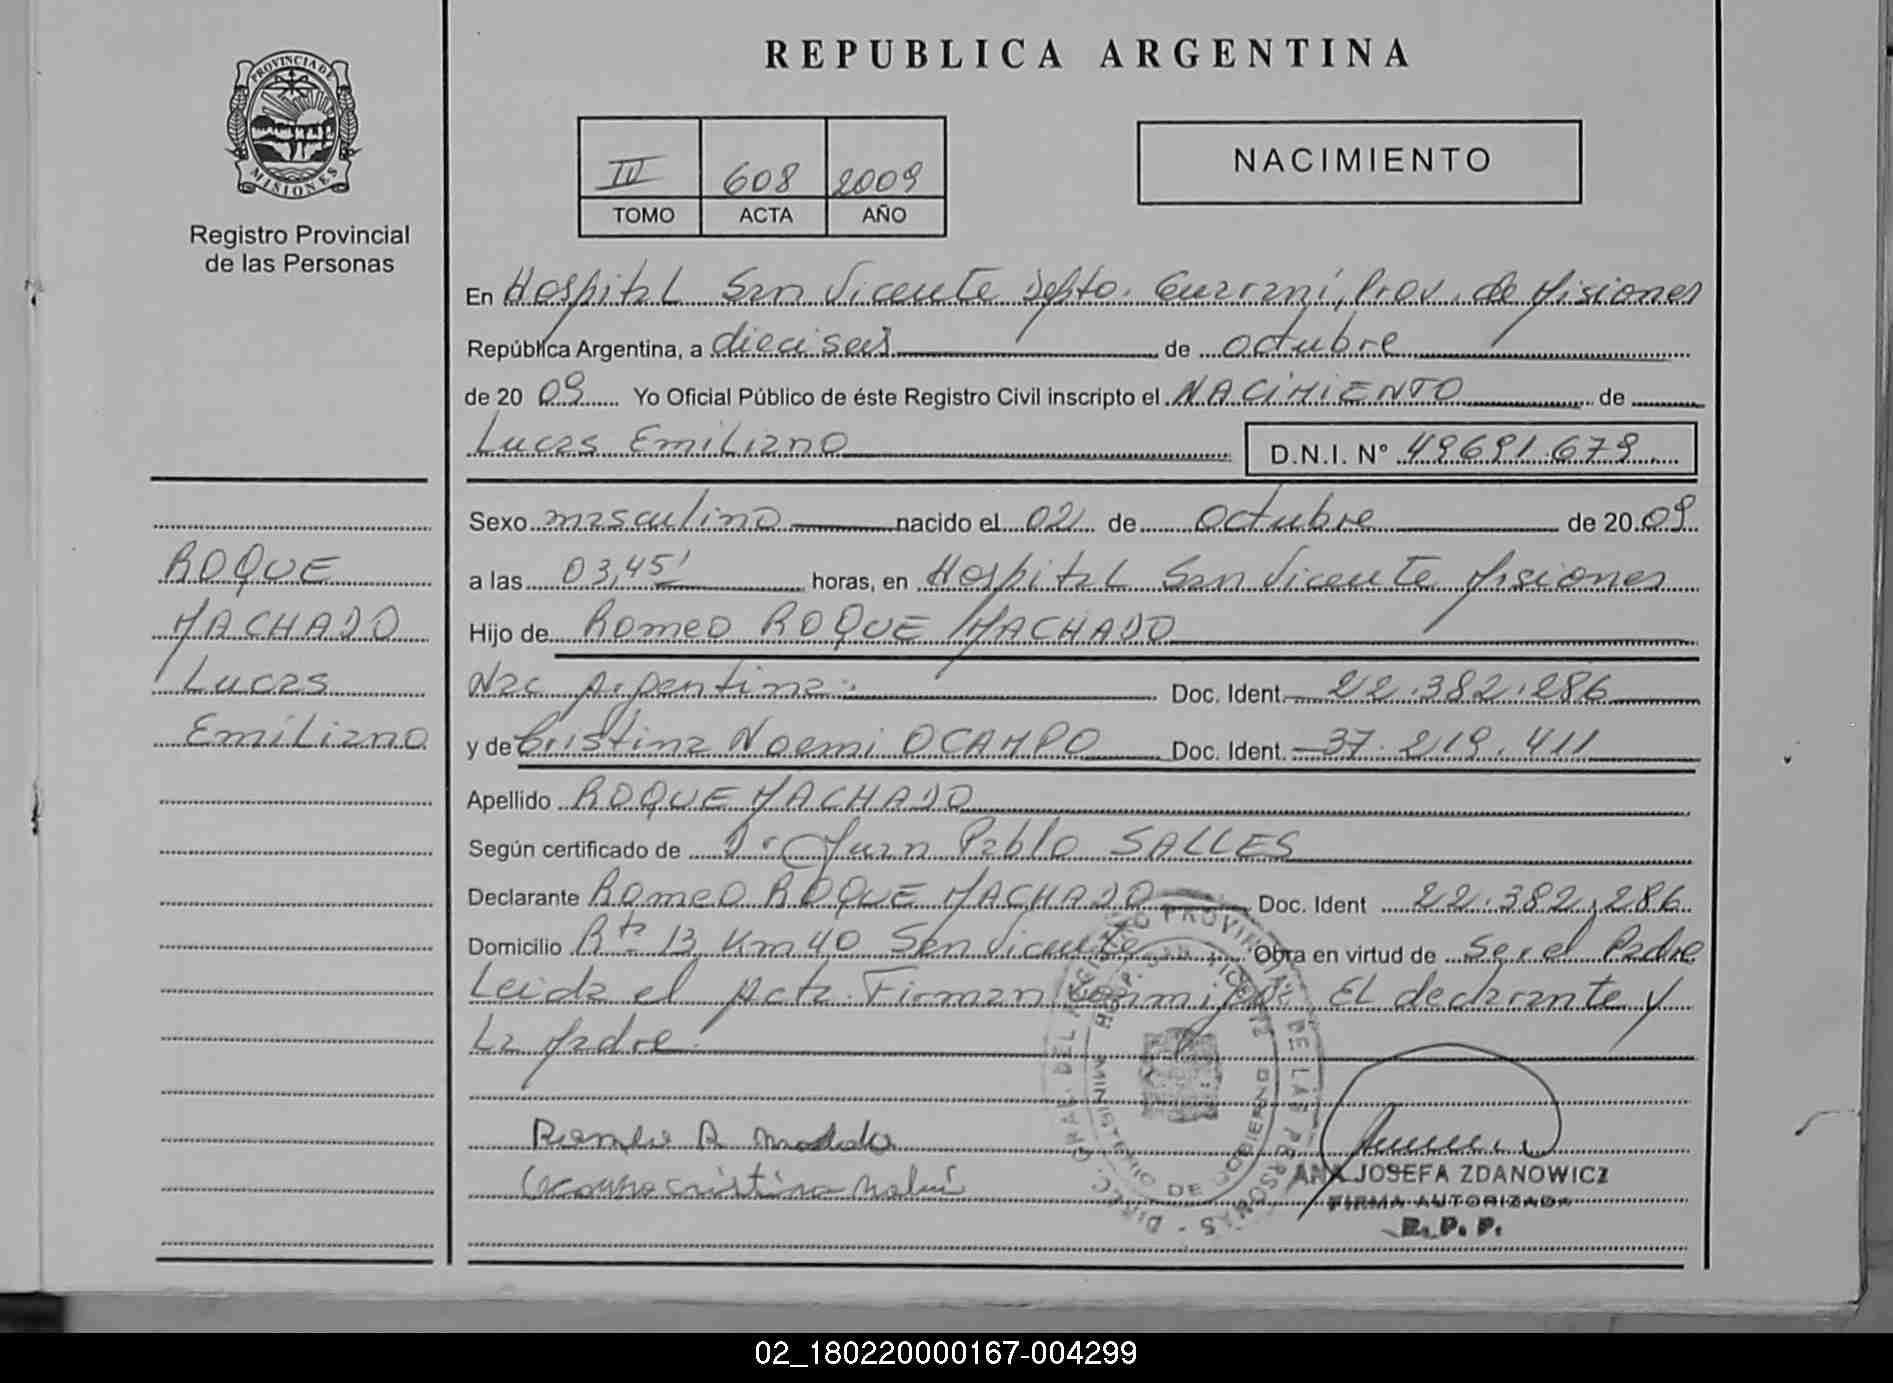 REPUBLICA ARGENTINA
PROVINCIA DE
MISIONES
Registro Provincial
de las Personas
III 608 2009
TOMO ACTA AÑO
NACIMIENTO
En Hospital San Vicente Depto. Guaraní, Prov. de Misiones
República Argentina, a dieciseis de octubre
de 20 09 Yo Oficial Público de éste Registro Civil inscripto el NACIMIENTO de
Lucas Emiliano D.N.I. Nº 49691.679
Sexo masculino nacido el 02 de octubre de 20 09
a las 03,45' horas, en Hospital San Vicente Misiones
Hijo de Romeo ROQUE MACHADO
Nac Argentina. Doc. Ident. 22.382.286
y de Cristina Noemi OCAMPO Doc. Ident. 37.219.411
Apellido ROQUE MACHADO
Según certificado de Dr Juan Pablo SALLES
Declarante Romeo ROQUE MACHADO Doc. Ident 22.382.286
Domicilio Rta 13 Km 40 San Vicente Obra en virtud de Ser el Padre
Leida el Acta. Firman conmigo El declarante y
La Madre.
ROQUE
MACHADO
Lucas
Emiliano
DIREC. GRAL. DEL REGISTRO PROVINCIAL DE LAS PERSONAS
HOSP. SAN VICENTE
MINISTERIO DE GOBIERNO
Ocampo cristina
ANA JOSEFA ZDANOWICZ
FIRMA AUTORIZADA
R. P. P.
02_180220000167-004299